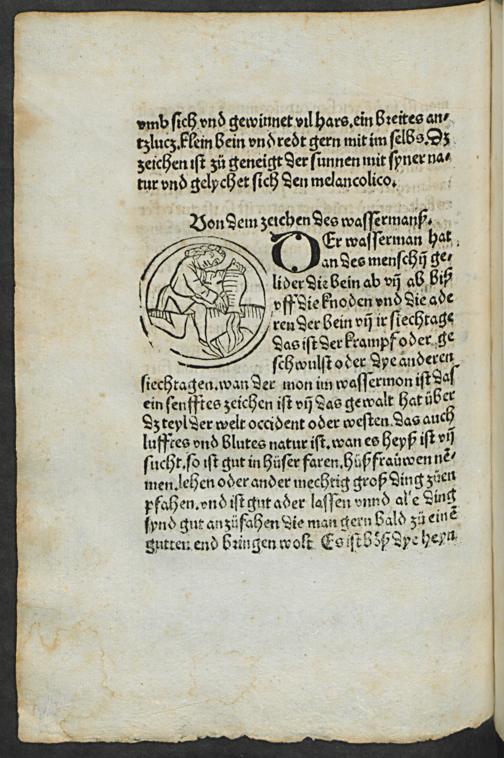 vmb sich vnd gewinnet vil hars, ein breites an⸗
tzlucz, klein bein vnd redt gern mit im selbs. Dz
zeichen ist zů geneigt der sunnen mit syner na⸗
tur vnd gelychet sich den melancolico.
Von dem zeichen des wassermanß.
DEr wasserman hat
an des menschẽ ge⸗
lider die bein ab vñ ab biß
vff die knoden vnd die ade
ren der bein vñ ir siechtage
das ist der krampf oder ge
schwulst oder dye anderen
siechtagen. wan der mon im wassermon ist das
ein senfftes zeichen ist vñ das gewalt hat über
dz teyl der welt occident oder westen. das auch
lufftes vnd blutes natur ist. wan es heyß ist vñ
fucht. so ist gut in hüser faren. hüßfrauwen nẽ⸗
men. lehen oder ander mechtig groß ding zůen
pfahen. vnd ist gut ader lassen vnnd alle ding
synd gut an zůfahen die man gern bald zů einẽ
gutten end bringen wolt. Es ist böß dye heyn